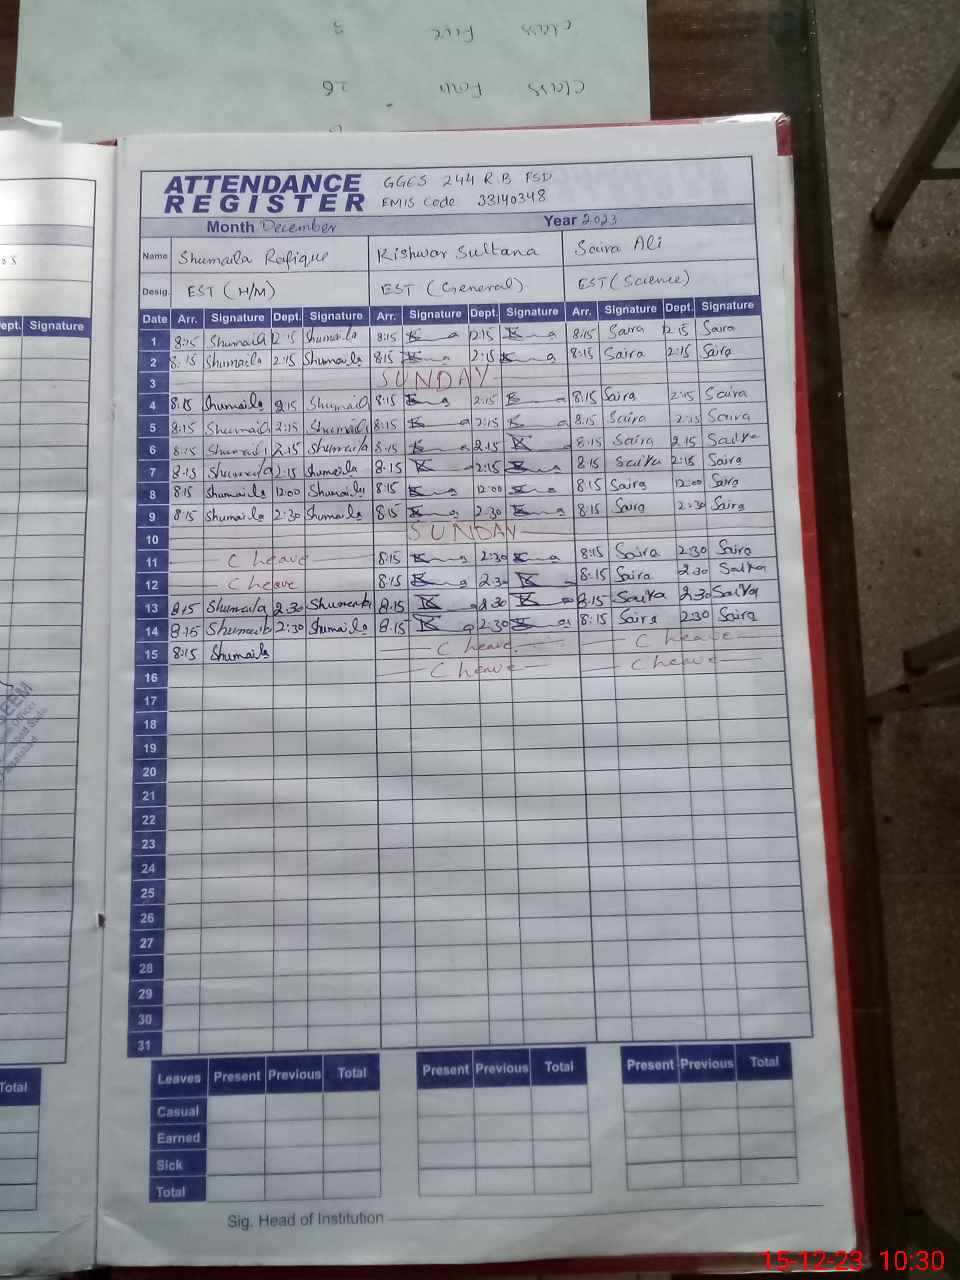 class Five 3
class Four 26
ATTENDANCE REGISTER GGES 244 R.B FSD
EMIS Code 33140348
Month December Year 2023
Name Shumaila Rafique Kishwar Sultana Saira Ali
Desig. EST (H/M) EST (General) EST (Science)
Date Arr. Signature Dept. Signature Arr. Signature Dept. Signature Arr. Signature Dept. Signature
1 8:15 Shumaila 2:15 Shumaila 8:15 2:15 8:15 Saira 2:15 Saira
2 8:15 Shumaila 2:15 Shumaila 8:15 2:15 8:15 Saira 2:15 Saira
3 SUNDAY
4 8:15 Shumaila 2:15 Shumaila 8:15 2:15 8:15 Saira 2:15 Saira
5 8:15 Shumaila 2:15 Shumaila 8:15 2:15 8:15 Saira 2:15 Saira
6 8:15 Shumaila 2:15 Shumaila 8:15 2:15 8:15 Saira 2:15 Saira
7 8:15 Shumaila 2:15 Shumaila 8:15 2:15 8:15 Saira 2:15 Saira
8 8:15 Shumaila 12:00 Shumaila 8:15 12:00 8:15 Saira 12:00 Saira
9 8:15 Shumaila 2:30 Shumaila 8:15 2:30 8:15 Saira 2:30 Saira
10 SUNDAY
11 C leave 8:15 2:30 8:15 Saira 2:30 Saira
12 C leave 8:15 2:30 8:15 Saira 2:30 Saira
13 8:15 Shumaila 2:30 Shumaila 8:15 2:30 8:15 Saira 2:30 Saira
14 8:15 Shumaila 2:30 Shumaila 8:15 2:30 8:15 Saira 2:30 Saira
15 8:15 Shumaila C leave C leave
16 C leave C leave
17
18
19
20
21
22
23
24
25
26
27
28
29
30
31
Leaves Present Previous Total Present Previous Total Present Previous Total
Casual
Earned
Sick
Total
Sig. Head of Institution
Dept. Signature
Total
15-12-23 10:30